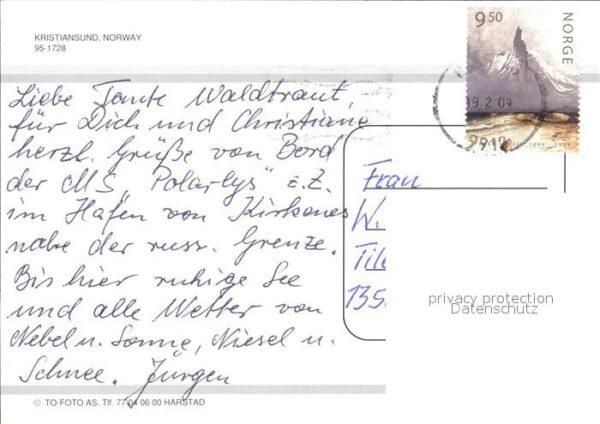 KRISTIANSUND, NORWAY
95-1728
9.50
NORGE
19.2.04
Liebe Tante Waldtraut,
für Dich und Christiane
herzl. Grüße von Bord
der MS „Polarlys" z.Z.
im Hafen von Kirkenes
nahe der russ. Grenze.
Bis hier ruhige See
und alle Wetter von
Nebel u. Sonne, Niesel u.
Schnee. Jürgen
Frau
W.
135
privacy protection
Datenschutz
© TO-FOTO AS. Tlf. 77 04 06 00 HARSTAD